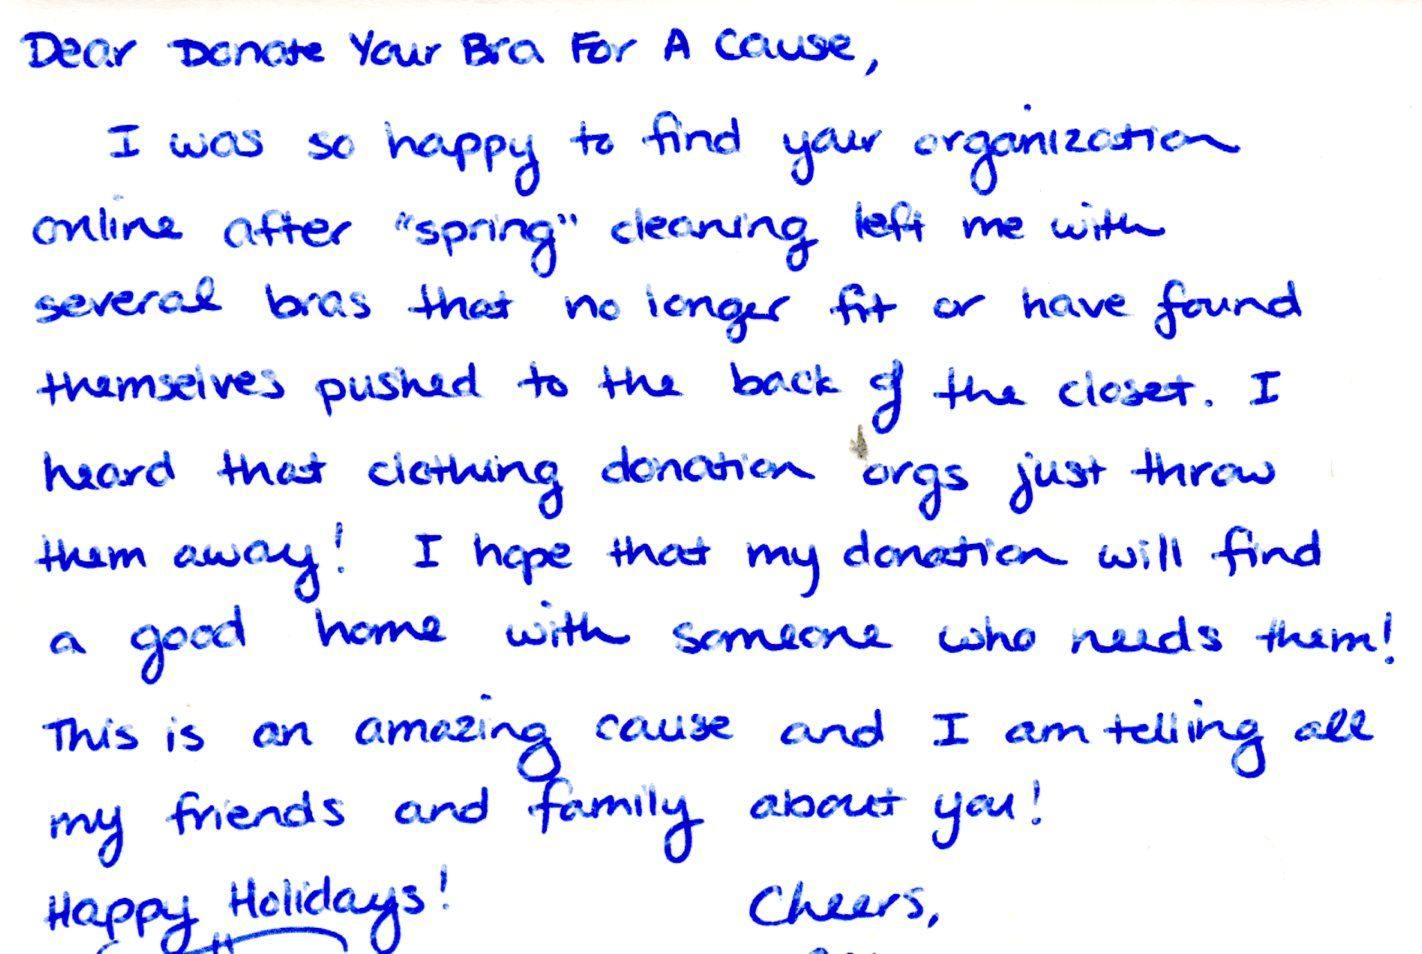 Dear Donate Your Bra For A Cause,
I was so happy to find your organization
online after "spring" cleaning left me with
several bras that no longer fit or have found
themselves pushed to the back of the closet. I
heard that clothing donation orgs just throw
them away! I hope that my donation will find
a good home with someone who needs them!
This is an amazing cause and I am telling all
my friends and family about you!
Happy Holidays! Cheers,